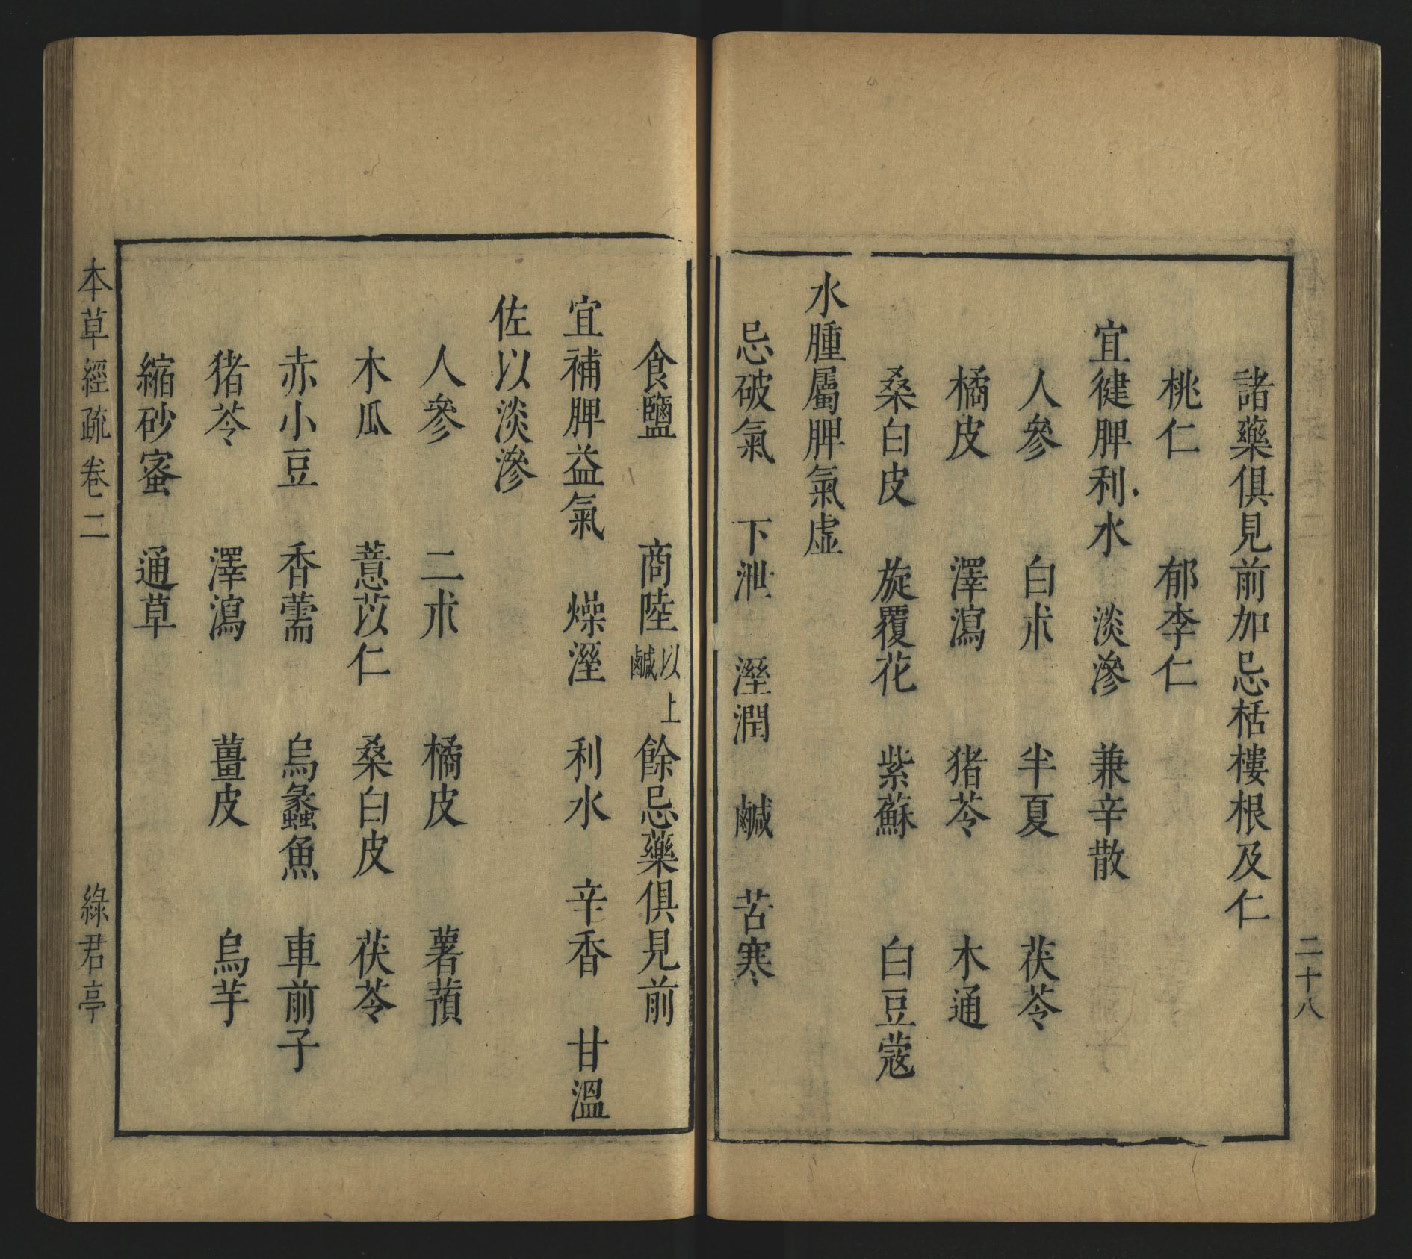 諸藥俱見前加忌栝樓根及仁
桃仁　郁李仁
宜健脾利水　淡滲　兼辛散
人參　白朮　半夏　茯苓
橘皮　澤瀉　猪苓　木通
桑白皮　旋覆花　紫蘇　白豆蔻
水腫屬脾氣虛
忌破氣　下泄　溼潤　鹹　苦寒
二十八
食鹽　商陸以上鹹餘忌藥俱見前
宜補脾益氣　燥溼　利水　辛香　甘溫
佐以淡滲
人參　二朮　橘皮　薯蕷
木瓜　薏苡仁　桑白皮　茯苓
赤小豆　香薷　烏蠡魚　車前子
猪苓　澤瀉　薑皮　烏芋
縮砂蜜　通草
本草經疏卷二　綠君亭